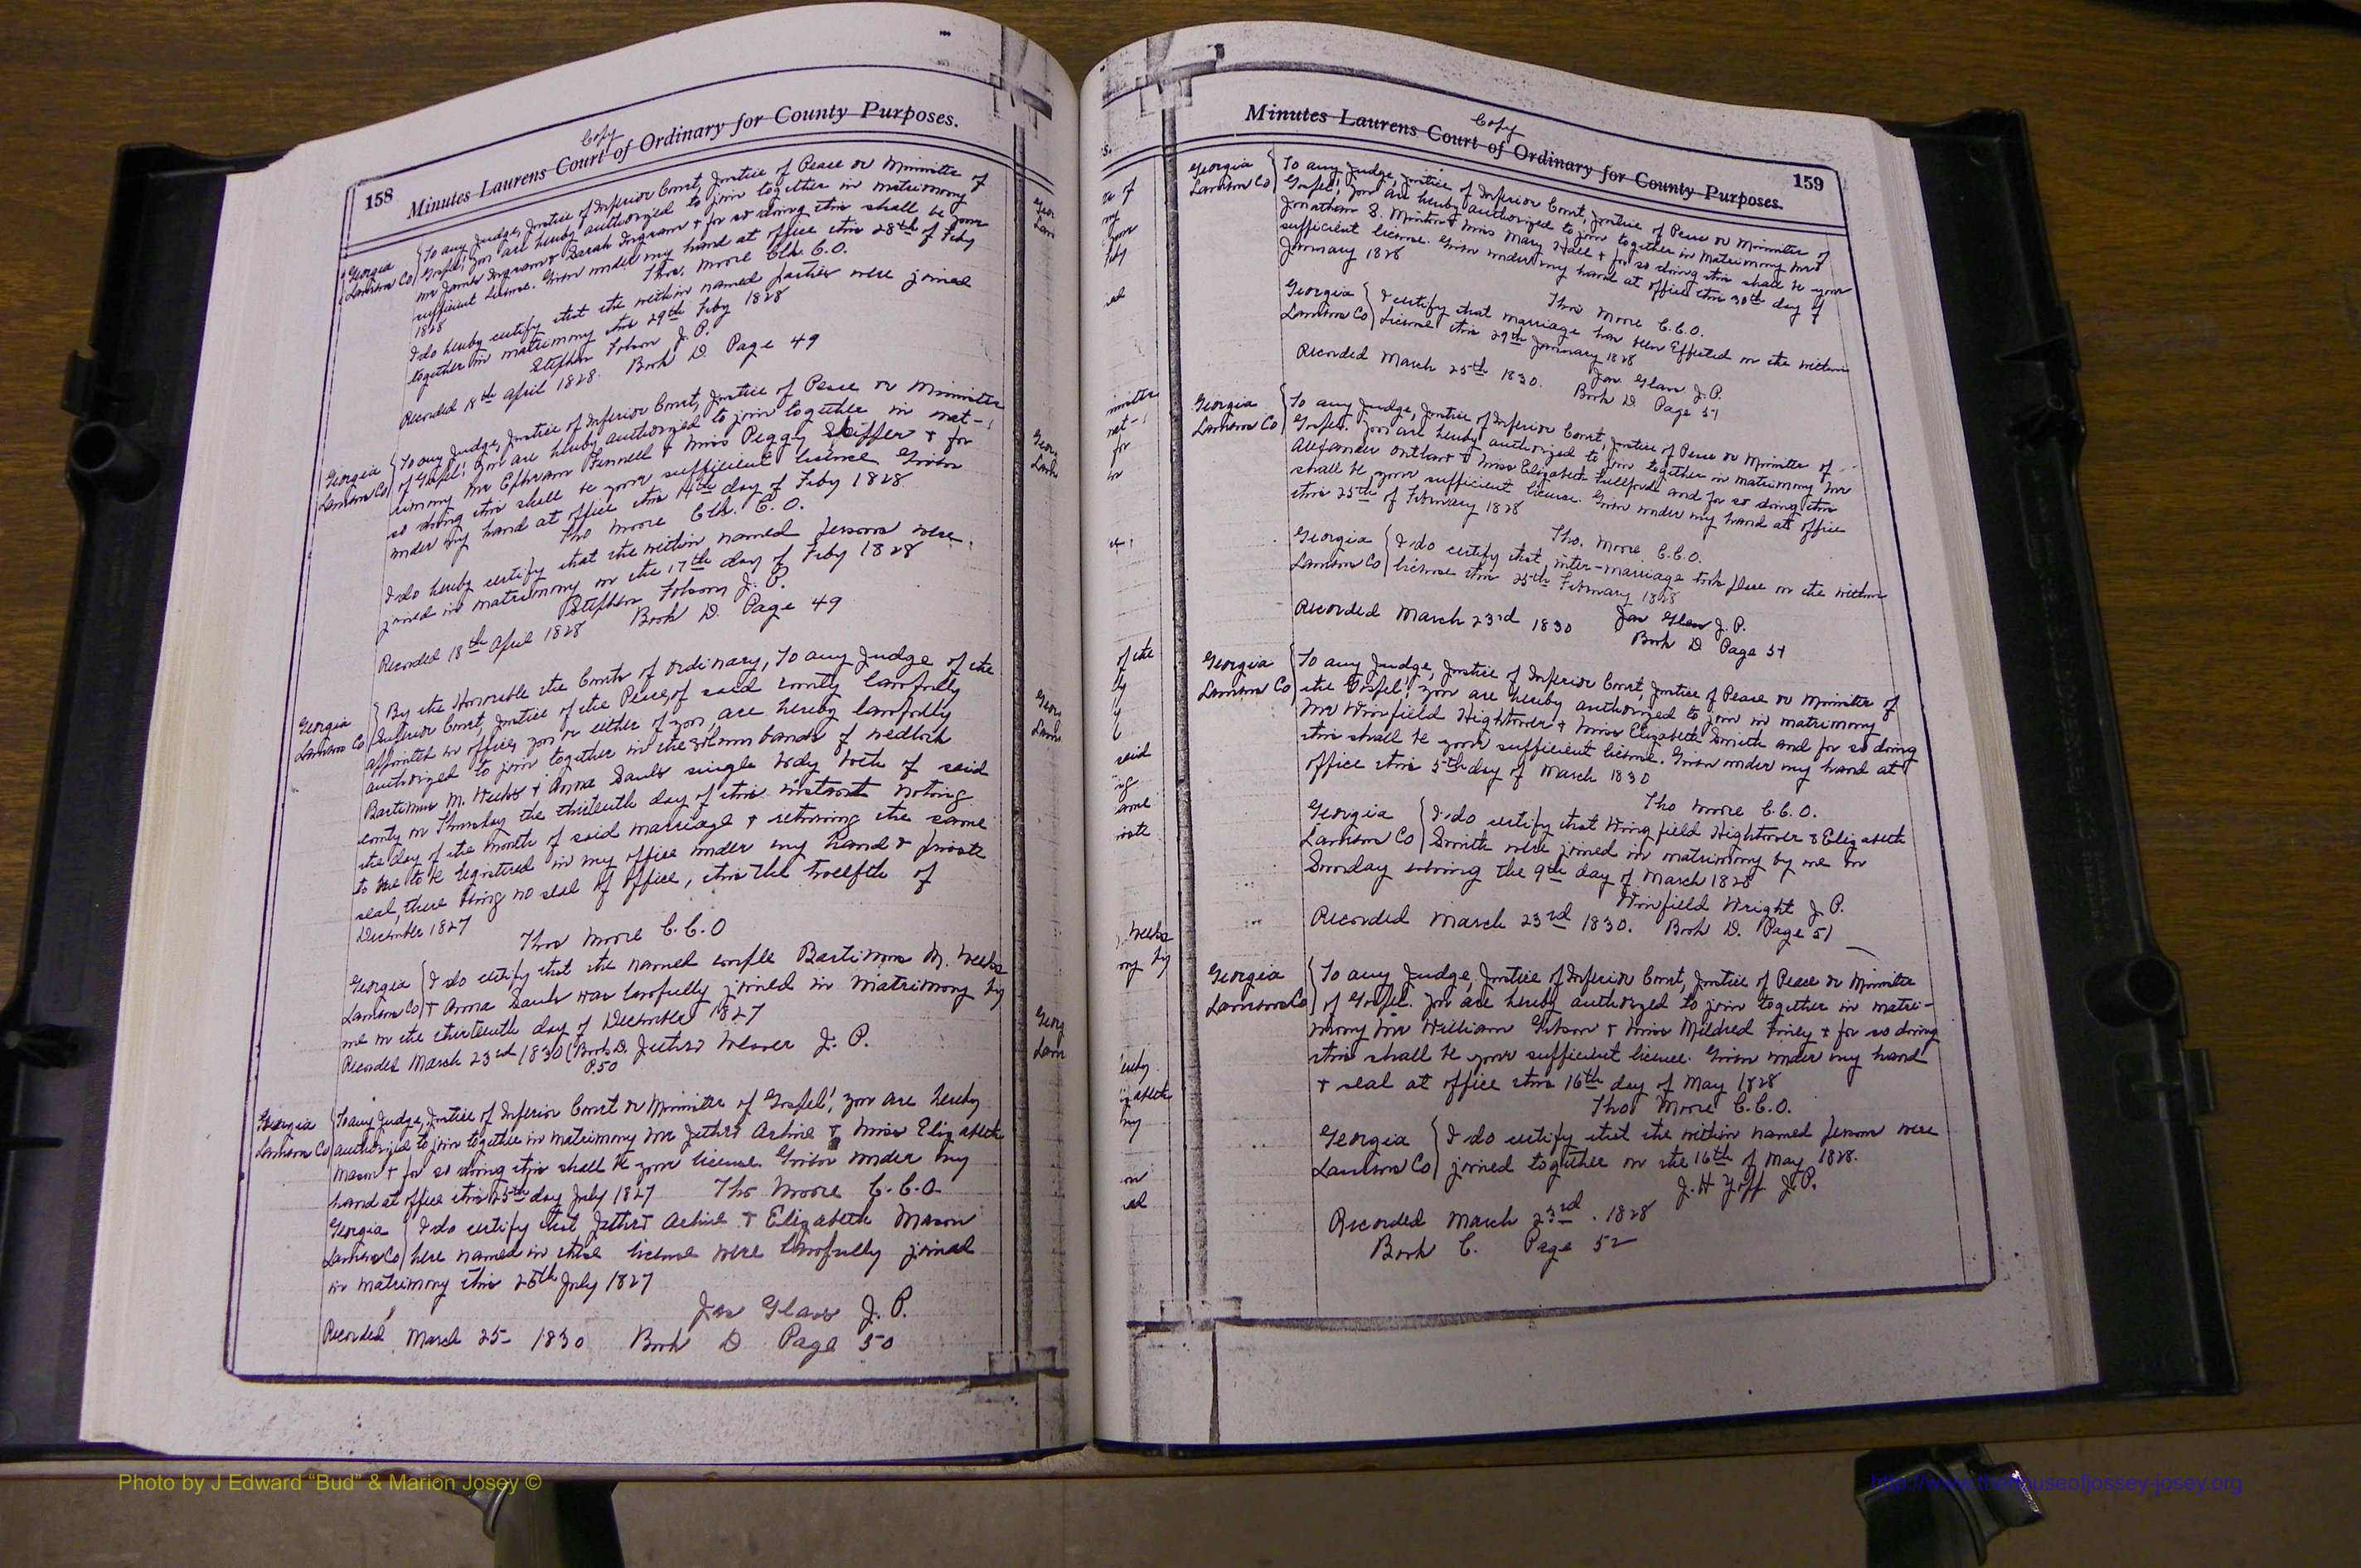 158
Copy
Minutes Laurens Court of Ordinary for County Purposes.
Georgia
Laurens Co
To any Judge, Justice of Inferior Court, Justice of Peace or Minister of
Gospel! You are hereby authorized to join together in matrimony
Mr James Ingram & Sarah Ingram & for so doing this shall be your
sufficient license. Given under my hand at office this 28th of Feby
1828
Thos. Moore Clk. C.O.
I do hereby certify that the within named parties were joined
together in matrimony this 29th Feby 1828
Stephen Folsom J. P.
Recorded 18th April 1828. Book D. Page 49
Georgia
Laurens Co
To any Judge, Justice of Inferior Court, Justice of Peace or Minister
of Gospel! You are hereby authorized to join together in mat-
rimony Mr Ephraim Fennell & Miss Peggy & for
so doing this shall be your sufficient license Given
under my hand at office this 14th day of Feby 1828
Tho Moore Clk. C. O.
I do hereby certify that the within named persons were
joined in matrimony on the 17th day of Feby 1828
Stephen Folsom J. P.
Recorded 18th April 1828 Book D. Page 49
Georgia
Laurens Co
By the Honorable the Courts of Ordinary, To any Judge of the
Inferior Court, Justice of the Peace, of said county lawfully
appointed in office, you or either of you, are hereby lawfully
authorized to join together in the solemn bands of wedlock
Bartimus M. Weeks & Anna Sauls single body both of said
county on Thursday the thirteenth day of this instant noting
the day of the month of said marriage & returning the same
to me to be registered in my office under my hand & private
seal, there being no seal of office, this the twelfth of
December 1827
Thos Moore C.C.O
Georgia
Laurens Co
I do certify that the named couple Bartimus M. Weeks
& Anna Sauls was lawfully joined in matrimony by
me on the thirteenth day of December 1827
Recorded March 23rd 1830 (Book D. Jethro Weaver J. P.
P.50
Georgia
Laurens Co
To any Judge, Justice of Inferior Court or Minister of Gospel! you are hereby
authorized to join together in matrimony Mr Jethro & Miss Elizabeth
Mason & for so doing this shall be your license Given under my
hand at office this 25th day July 1827 Tho Moore C.C.O
Georgia
Laurens Co
I do certify that Jethro & Elizabeth Mason
here named in these license were lawfully joined
in matrimony this 26th July 1827
Jas Glass J. P.
Recorded March 25 1830 Book D Page 50
159
Copy
Minutes Laurens Court of Ordinary for County Purposes.
Georgia
Laurens Co
To any Judge, Justice of Inferior Court, Justice of Peace or Minister of
Gospel! You are hereby authorized to join together in Matrimony Mr
Jonathan S. & Miss Mary Hall & for so doing this shall be your
sufficient license. Given under my hand at office this 30th day of
January 1828
Thos Moore C.C.O.
Georgia
Laurens Co
I certify that marriage has been Effected on the within
License this 29th January 1828
Jas Glass J. P.
Recorded March 25th 1830. Book D Page 51
Georgia
Laurens Co
To any Judge, Justice of Inferior Court, Justice of Peace or Minister of
Gospel. You are hereby authorized to join together in matrimony Mr
Alexander Outlaw & Miss Elizabeth Fullford and for so doing this
shall be your sufficient license. Given under my hand at office
this 25th of February 1828
Tho. Moore C.C.O.
Georgia
Laurens Co
I do certify that inter-marriage took place on the within
license this 25th February 1828
Jas Glass J. P.
Recorded March 23rd 1830 Book D Page 51
Georgia
Laurens Co
To any Judge, Justice of Inferior Court, Justice of Peace or Minister of
the Gospel! you are hereby authorized to join in matrimony
Mr Winfield Hightower & Miss Elizabeth Smith and for so doing
this shall be your sufficient license. Given under my hand at
office this 5th day of March 1830
Tho Moore C.C.O.
Georgia
Laurens Co
I do certify that Wingfield Hightower & Elizabeth
Smith were joined in matrimony by me on
Sunday evening the 9th day of March 1828
Winfield Wright J. P.
Recorded March 23rd 1830. Book D. Page 51
Georgia
Laurens Co
To any Judge, Justice of Inferior Court, Justice of Peace or Minister
of Gospel. You are hereby authorized to join together in matri-
mony Mr William Gibson & Miss Mildred Finley & for so doing
this shall be your sufficient license. Given under my hand
& seal at office this 16th day of May 1828
Thos Moore C.C.O.
Georgia
Laurens Co
I do certify that the within named persons were
joined together on the 16th of May 1828.
J. H Yopp J. P.
Recorded March 23rd. 1828
Book C. Page 52
Photo by J Edward "Bud" & Marion Josey ©
http://www.thehouseofjossey-josey.org